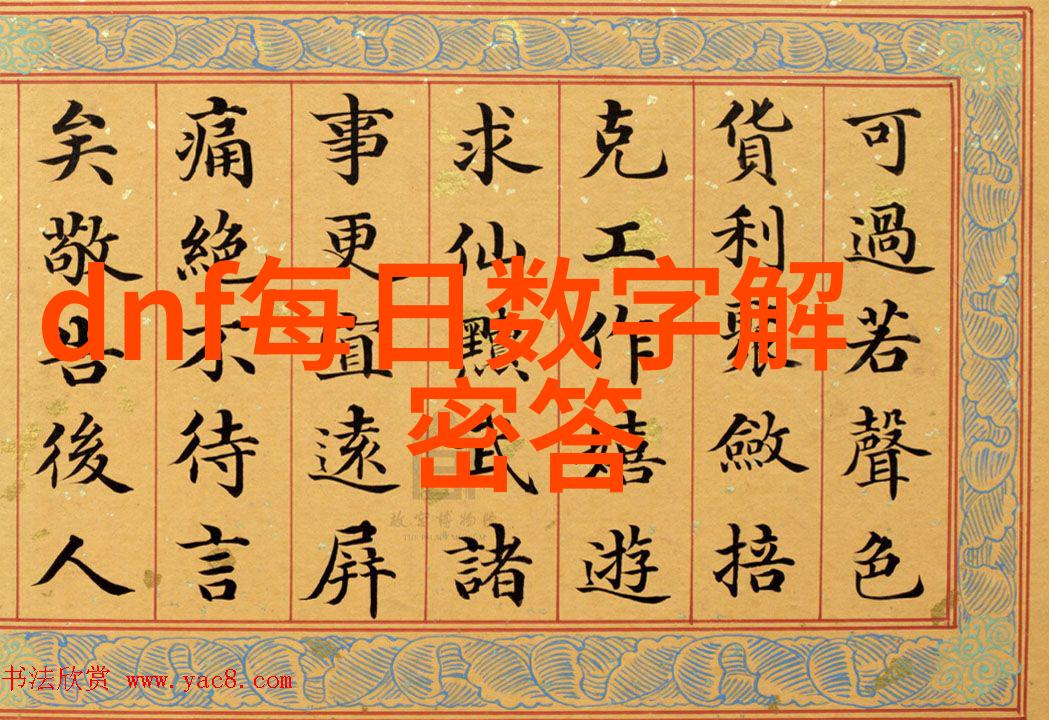 可過若聲色
貨利聚斂掊
克工作嬉遊
求仙黷武諸
事更宜遠屏
痛絕不待言
矣敬告後人
dnf每日数字解
密答
故宫博物院
书法欣赏 www.yac8.com